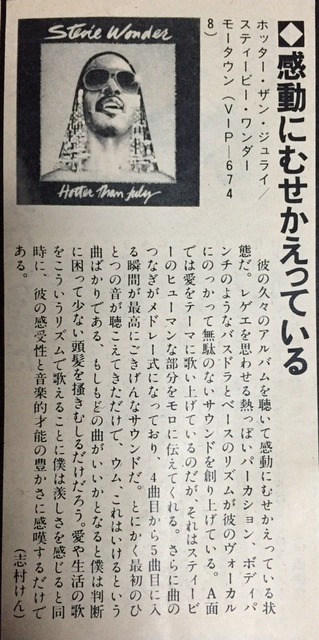 ◆感動にむせかえっている
ホッター・ザン・ジュライ/
スティービー・ワンダー
モータウン(VIP―674
8)
Stevie Wonder
Hotter Than July
彼の久々のアルバムを聴いて感動にむせかえっている状
態だ。レゲエを思わせる熱っぽいパーカション、ボディパ
ンチのようなバスドラとベースのリズムが彼のヴォーカル
にのっかって無駄のないサウンドを創り上げている。A面
では愛をテーマに歌い上げているのだが、それはスティービ
ーのヒューマンな部分をモロに伝えてくれる。さらに曲の
つなぎがメドレー式になっており、4曲目から5曲目に入
る瞬間が最高にごきげんなサウンドだ。とにかく最初のひ
とつの音が聴こえてきただけで、ウム、これはいけるという
曲ばかりである、もしもどの曲がいいかとなると僕は判断
に困って少ない頭髪を掻きむしるだけだろう。愛や生活の歌
をこういうリズムで歌えることに僕は羨しさを感じると同
時に、彼の感受性と音楽的才能の豊かさに感嘆するだけで
ある。
(志村けん)